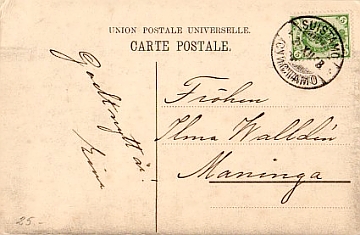 UNION POSTALE UNIVERSELLE.
CARTE POSTALE.
SUISTAMO
СУИСТАМО
5
Godt nytt år
Fröken
Ilma Walldén
Maninga
25.-